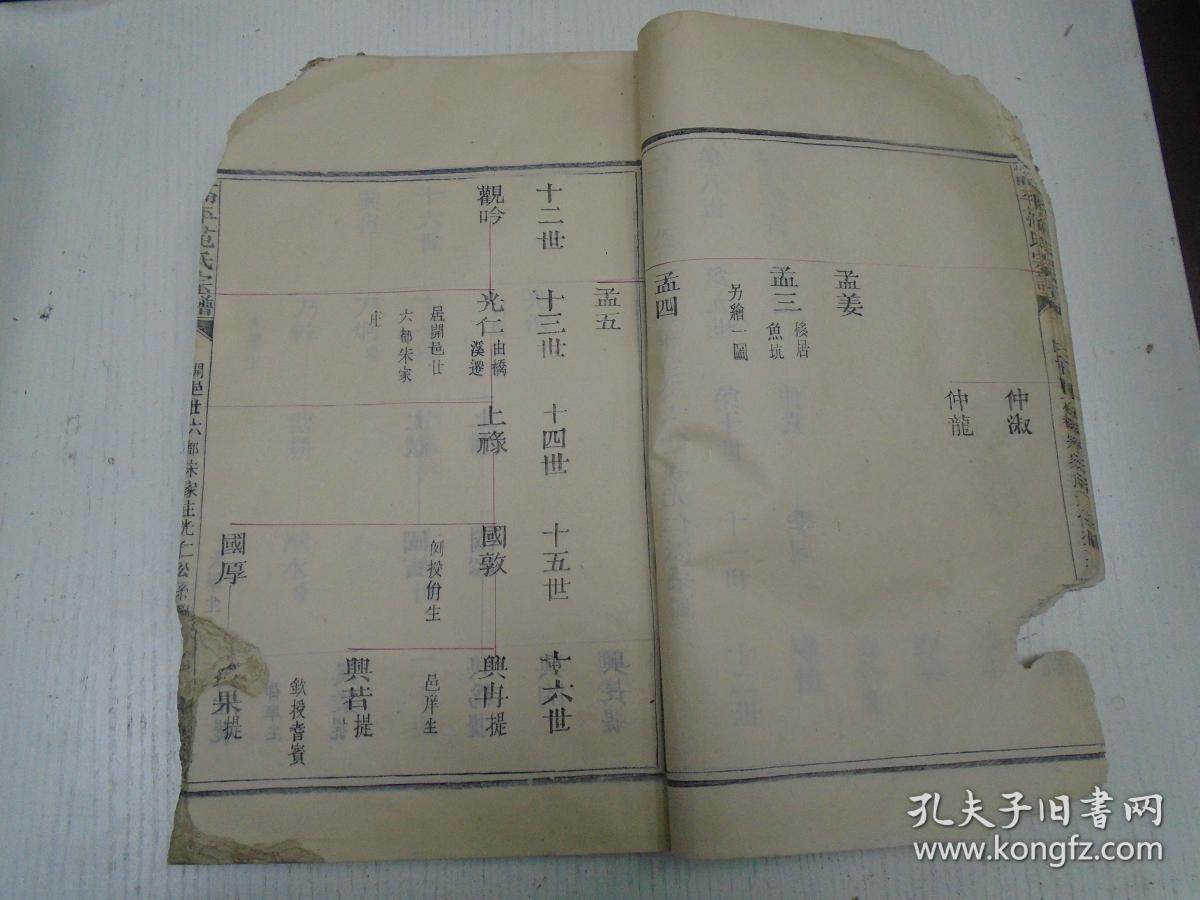 仲淑
仲龍
孟姜
孟三
移居
魚坑
另繪一圖
孟四
孟五
十二世
十三世
十四世
十五世
十六世
觀吟
光仁
由橋
溪遷
居開邑廿
六都朱家
庄
上祿
國敦
例授佾生
國厚
興冉提
邑庠生
興若提
欽授耆賓
果提
氏宗譜
開邑廿六都朱家庄光仁公系
孔夫子旧书网
www.kongfz.com